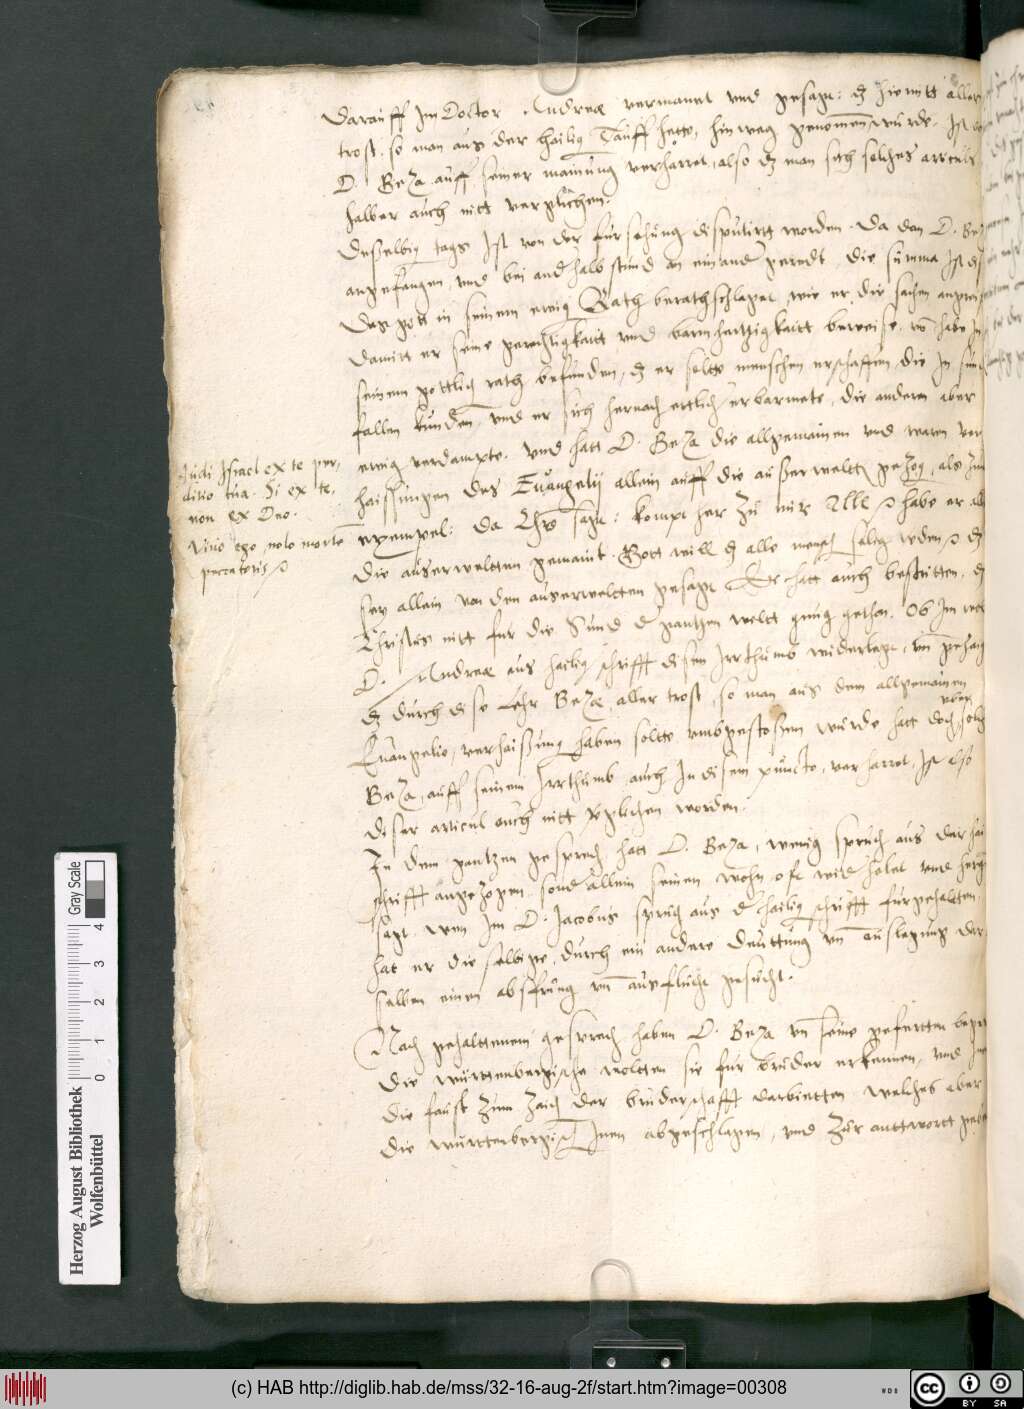 Darauff Im Doctor Andreæ vermanet und gesagt: dz hiemitt aller
trost, so man aus der hailig Tauff hette, hinweg genomen würde. Ist
D. Beza auff seiner mainung verharret, also dz man sich solches articuls
halber auch nitt verglichen.
Deßelbig tags Ist von der fürsehung disputirtt worden. Da dan D. Bez
angefangen, und bei anderhalb stund an einander geredt, die summa Ist
Das gott in seinem ewig Rath berathschlaget, wie er die sachen
damitt er seine gerechtigkaitt und barmhertzigkaitt beweise, habe
seinem gottlich rath befunden, dz er soltte menschen erschaffen, die In sünd
fallen kunden, und er sich hernach ettlich erbarmete, die andern aber
ewig verdampte. Und hatt D. Beza die allgemainen und waren ver
haissungen des Euangelij allein auff die außerweltt gezog, als zum
exempel: Da Chrs sagt: kompt her zu mir Alle habe er all
die auserweltten gemaint. Gott will dz alle mensch selig wden dz
sey allein von den auserweltten gesagt Er hatt auch bestritten, dz
Christus nitt für die Sünd d gantzen weltt gnug gethan. Ob Im wol
D. Andreæ aus hailig schrifft disen Irrthumb widerlegt, un
dz durch dise Lehr Bezæ, aller trost, so man aus dem allgemainen
Euangelio, verhaißung haben soltte umbgestoßen würde hatt doch uber solch
Beza, auff seinem Irrthumb auch In disem puncto, verharret, Ist also
diser articul auch nitt verglichen worden.
In dem gantzen gesprech hatt D. Beza, wenig spruch aus der hai
schrifft angezogen, sond allein seinen wohn oft wid holet und
sagt. Wen Im D. Jacobus spruch aus d hailig schrifft fürgehaltten,
hat er die selbige, durch ein andere deuttung un auslegung der
selben einen absprung un ausflucht gesucht.
Nach gehalttenem gesprech haben D. Beza un seine geferrtten
die württenbergische woltten sie für bruder erkennen, und Inen
die faust zum zaich der bruderschafft darbietten welches aber
die württenbergisch Inen abgeschlagen, und zur anttwortt
Judi Israel ex te per,
ditio tua. Si ex te,
non ex Deo.
Viuo ego, nolo mortem
peccatoris
Herzog August Bibliothek
Wolfenbüttel
0 1 2 3 4
Gray Scale
(c) HAB http://diglib.hab.de/mss/32-16-aug-2f/start.htm?image=00308
WDB
CC BY SA